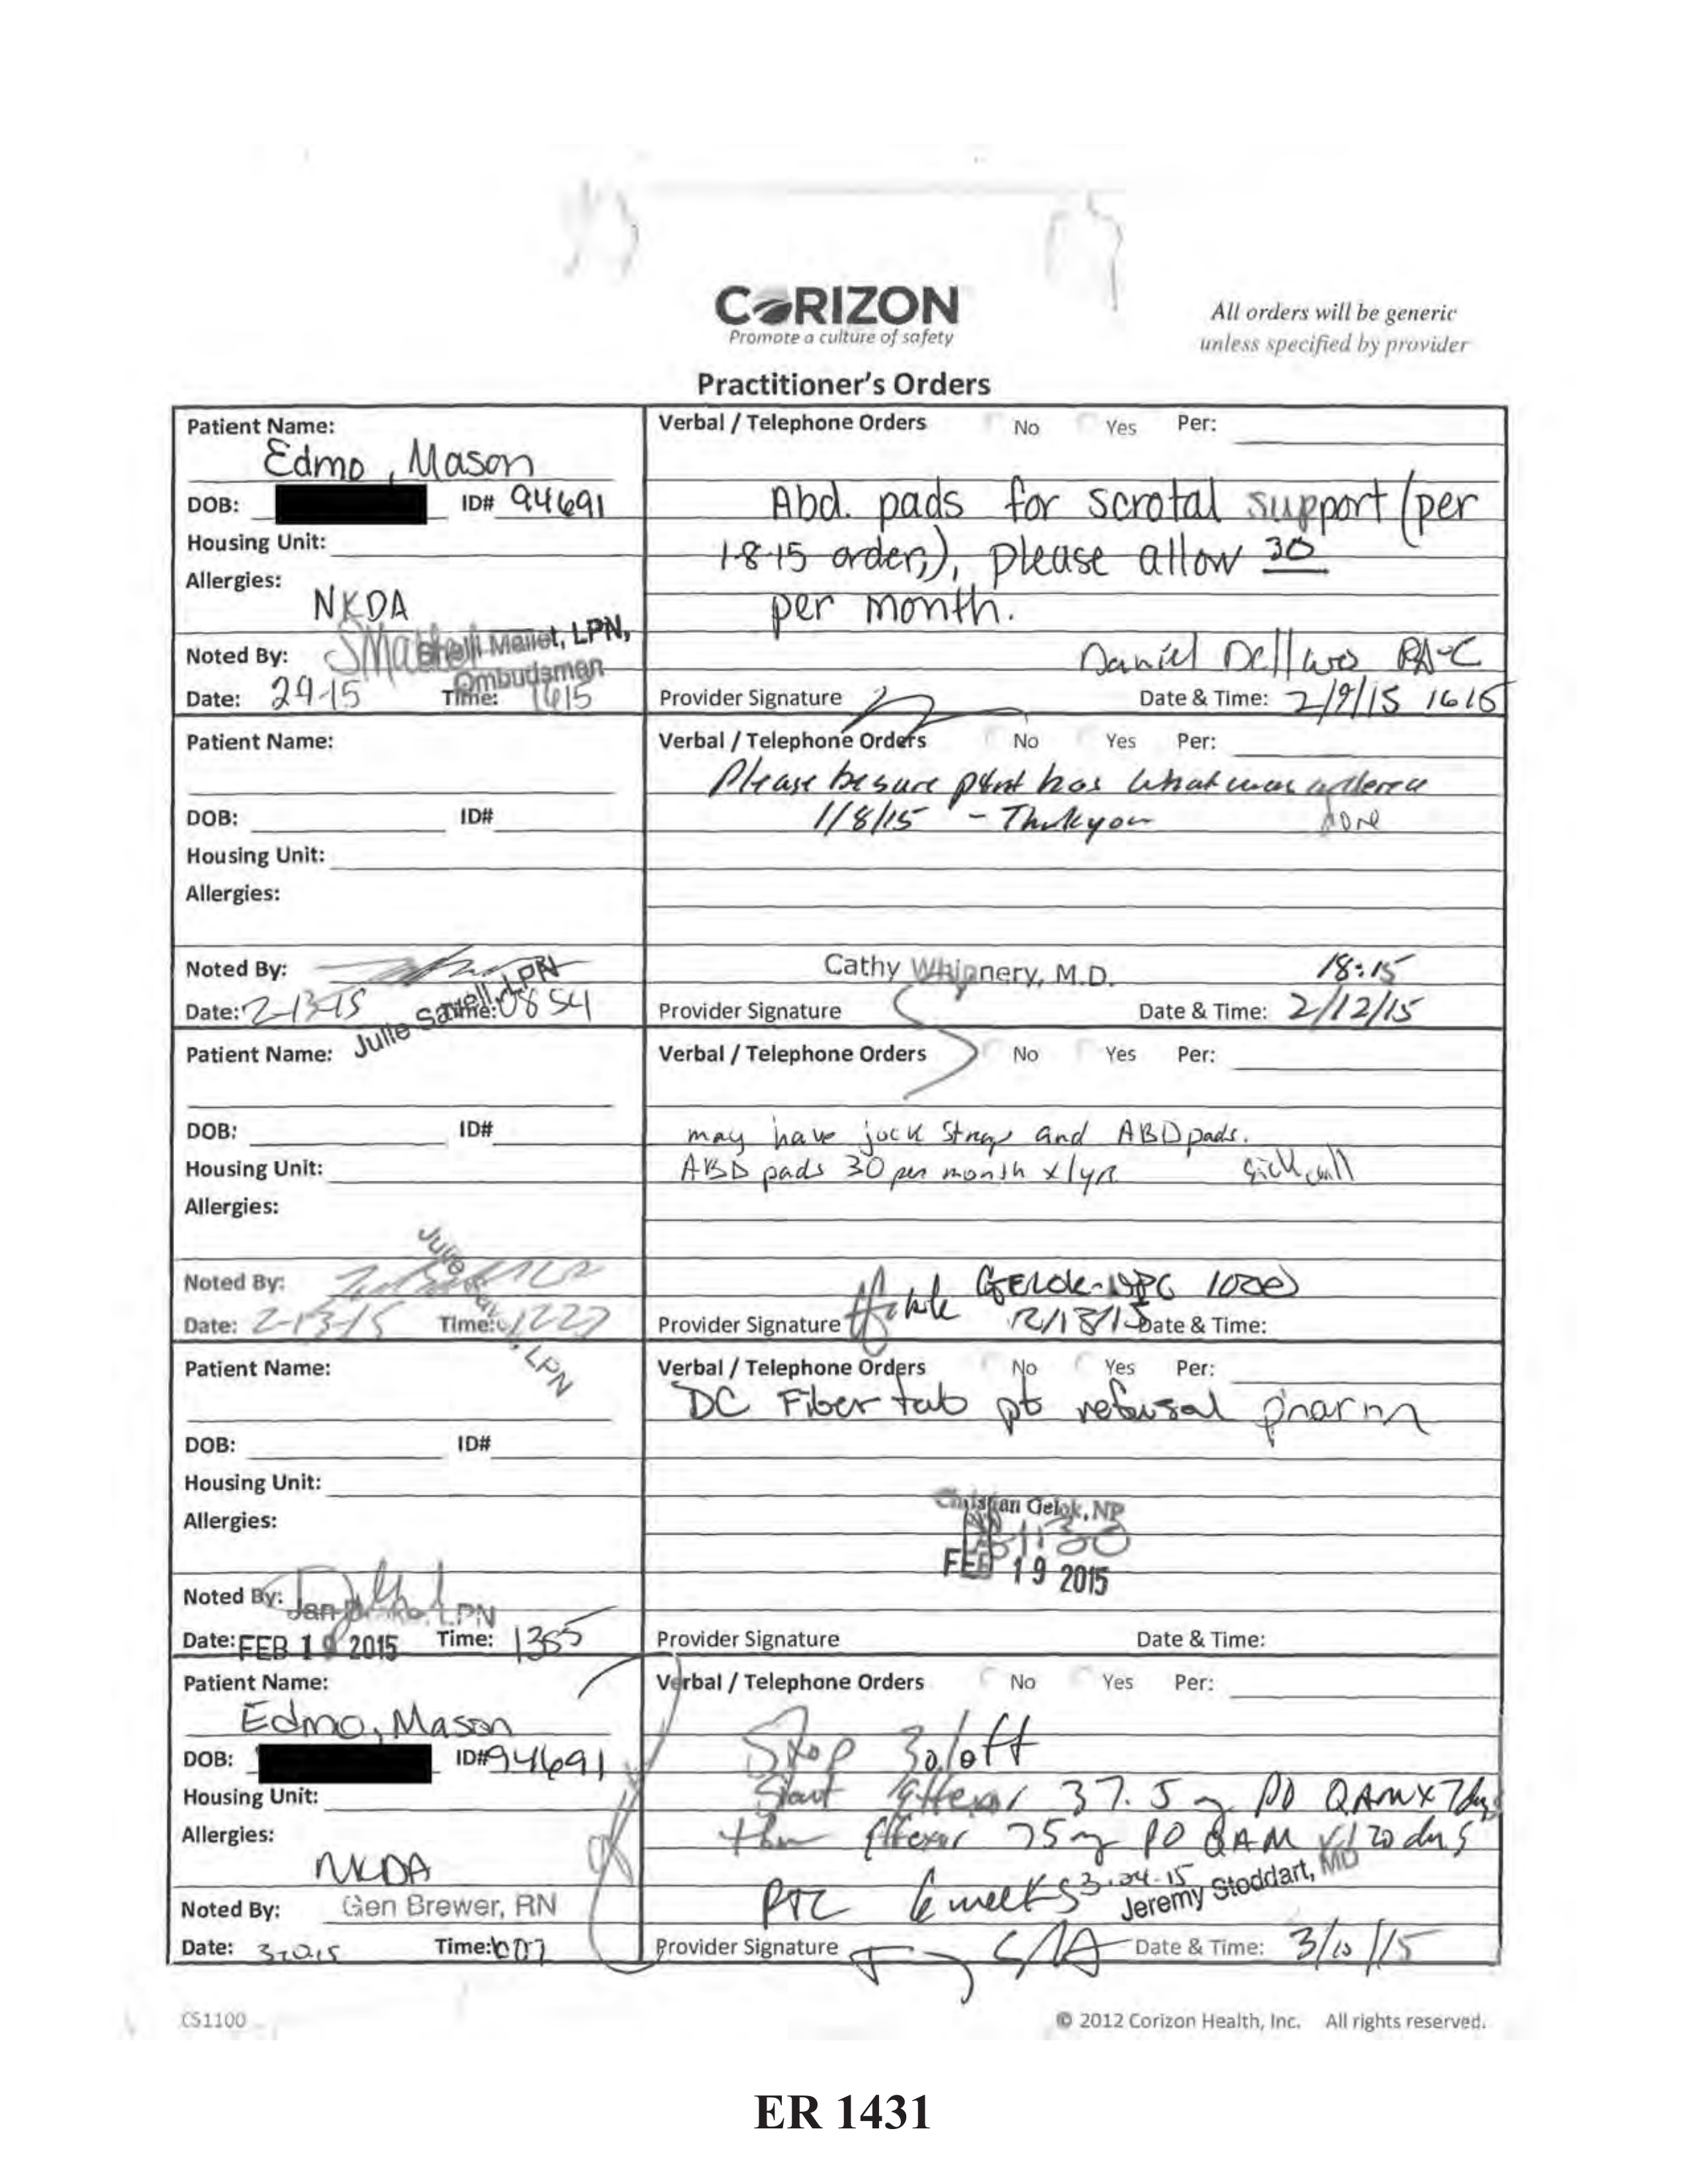 CORIZON
Promote a culture of safety
All orders will be generic
unless specified by provider
Practitioner's Orders
Patient Name:
Edmo, Mason
DOB: ID# 94691
Housing Unit:
Allergies:
NKDA
Mallet, LPN,
Ombudsman
Noted By:
Date: 2-9-15 Time: 1615
Verbal / Telephone Orders No Yes Per:
Abd. pads for scrotal support (per
1-8-15 order,), please allow 30
per month.
Daniel Dellwo PA-C
Provider Signature Date & Time: 2/9/15 1615
Patient Name:
DOB: ID#
Housing Unit:
Allergies:
Noted By:
Date: 2-13-15 Time: 0854
Julie LPN
Verbal / Telephone Orders No Yes Per:
Please be sure has what was ordered
1/8/15 - Thank you done
Cathy Whinnery, M.D. 18:15
Provider Signature Date & Time: 2/12/15
Patient Name:
DOB: ID#
Housing Unit:
Allergies:
Noted By:
Date: 2-13-15 Time: 1227
LPN
Verbal / Telephone Orders No Yes Per:
may have jock strap and ABD pads.
ABD pads 30 per month x 1yr sick call
Provider Signature 2/13/15 Date & Time:
Patient Name:
DOB: ID#
Housing Unit:
Allergies:
Noted By: Jan LPN
Date: FEB 19 2015 Time:
Verbal / Telephone Orders No Yes Per:
DC Fiber tab pt refusal pharm
Christian Gelok, NP
1130
FEB 19 2015
Provider Signature Date & Time:
Patient Name:
Edmo, Mason
DOB: ID# 94691
Housing Unit:
Allergies:
NKDA
Noted By: Gen Brewer, RN
Date: Time:
Verbal / Telephone Orders No Yes Per:
Stop
Start Effexor 37.5 mg PO QAM x 7 days
then Effexor 75 mg PO QAM x 120 days
RTC 6 weeks
Jeremy Stoddart, MD
Provider Signature Date & Time: 3/10/15
CS1100
© 2012 Corizon Health, Inc. All rights reserved.
ER 1431